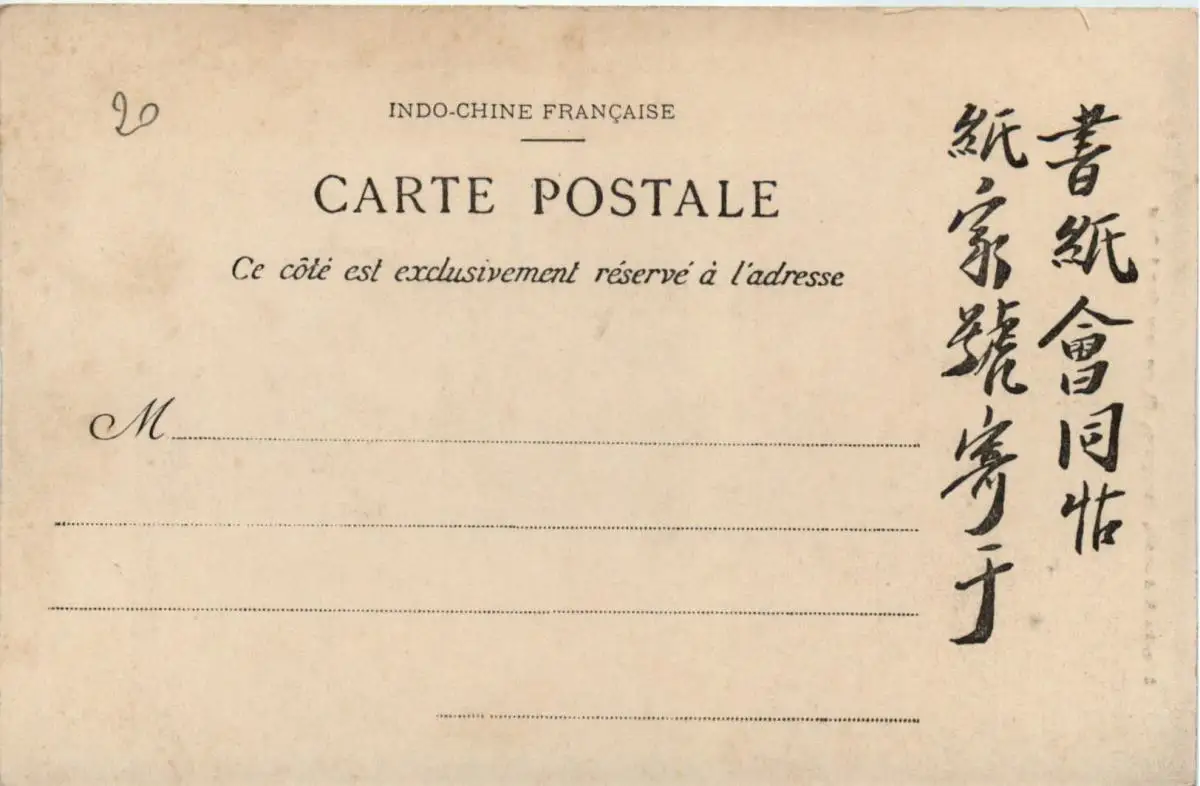 20
INDO-CHINE FRANÇAISE
CARTE POSTALE
Ce côté est exclusivement réservé à l'adresse
M
書紙會同帖
紙家號寄于